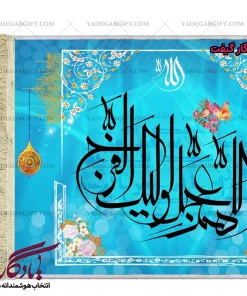 WWW.YADEGARGIFT.COM
گار گیفت
الله
اللهم عجل لولیک الفرج
یادگار
انتخاب هوشمندانه
WWW.YADEGARGIFT.COM